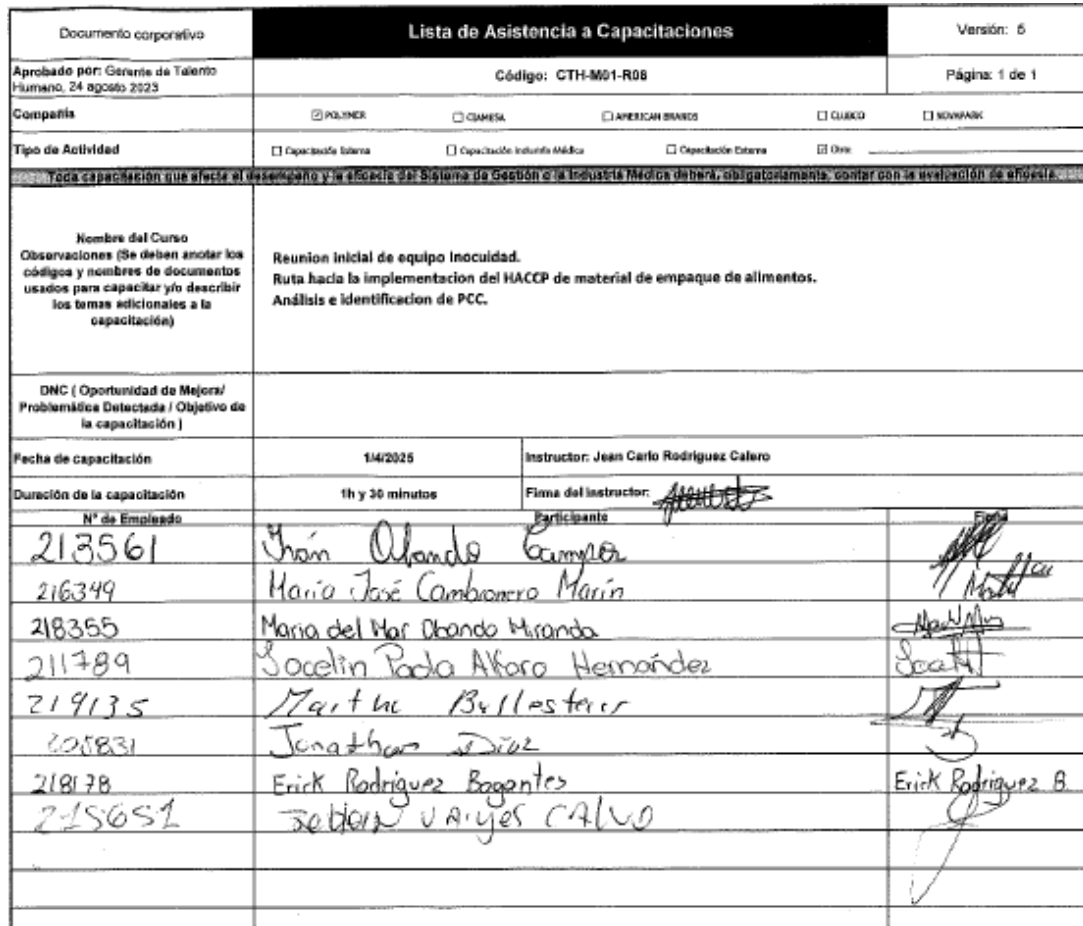 Documento corporativo
Lista de Asistencia a Capacitaciones
Versión: 5
Aprobado por: Gerente de Talento Humano, 24 agosto 2023
Código: CTH-M01-R08
Página: 1 de 1
Compañía ☑ POLYMER ☐ CIAMESA ☐ AMERICAN BRANDS ☐ CLUBCO ☐ NOVAPARK
Tipo de Actividad ☐ Capacitación Interna ☐ Capacitación Industria Médica ☐ Capacitación Externa ☑ Otro:
Toda capacitación que afecte el desempeño y la eficacia del Sistema de Gestión o la Industria Médica deberá, obligatoriamente, contar con la evaluación de eficacia.
Nombre del Curso
Observaciones (Se deben anotar los
códigos y nombres de documentos
usados para capacitar y/o describir
los temas adicionales a la
capacitación)
Reunion inicial de equipo Inocuidad.
Ruta hacia la implementacion del HACCP de material de empaque de alimentos.
Análisis e identificacion de PCC.
DNC ( Oportunidad de Mejora/
Problemática Detectada / Objetivo de
la capacitación )
Fecha de capacitación 1/4/2025 Instructor: Jean Carlo Rodriguez Calero
Duración de la capacitación 1h y 30 minutos Firma del instructor:
N° de Empleado Participante Firma
213561 Obando Campos
216349 María José Cambronero Marín
218355 Maria del Mar Obando Miranda
211789 Jocelin Paola Alfaro Hernández
219135 Martha
205831 Jonathan Díaz
218178 Erick Rodriguez Bogantes Erick Rodriguez B.
215651 CALVO